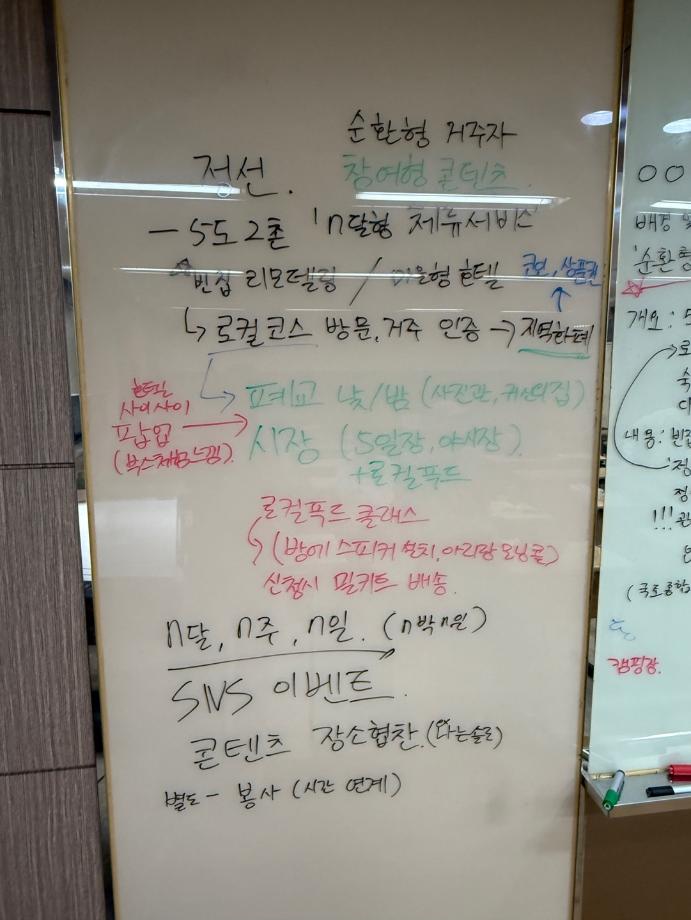 순환형 거주자
정선. 참여형 콘텐츠.
- 5도2촌 'n달형 제휴서비스'
빈집 리모델링 / 마을형 호텔
쿠폰, 상품권
↳ 로컬코스 방문, 거주 인증 → 지역화폐
호텔
사이사이
팝업
→ 폐교 낮/밤 (사진관, 귀신의집)
시장 (5일장, 야시장)
+로컬푸드
로컬푸드 클래스
(방에 스피커 설치, 아리랑 모닝콜)
신청시 밀키트 배송.
n달, n주, n일. (n박n일)
SNS 이벤트.
콘텐츠 장소협찬. (나는솔로)
별도 - 봉사 (시간 연계)
○○
배경 및
'순환형
개요: 5
내용: 빈집
'정
정
!!! 관
(국토종합
캠핑장.